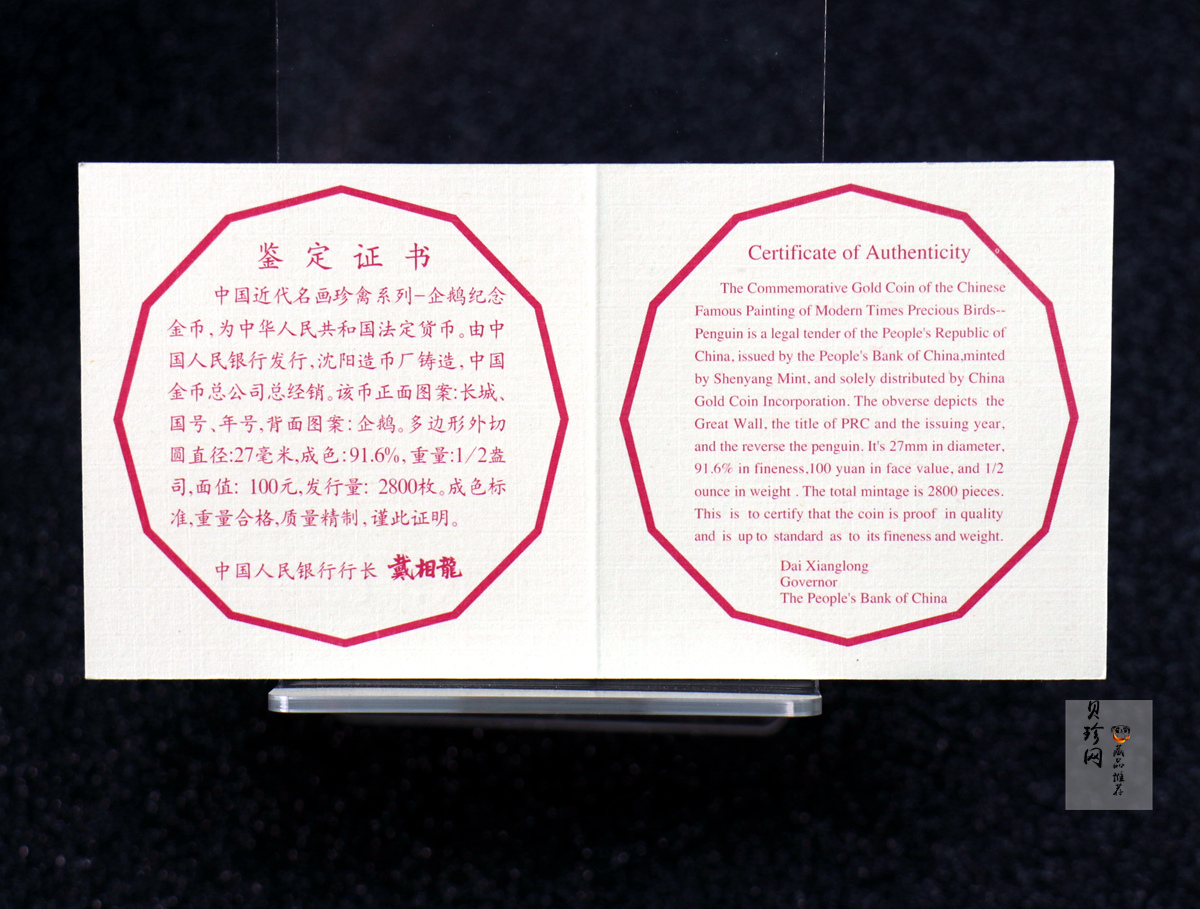 鉴定证书
中国近代名画珍禽系列-企鹅纪念
金币,为中华人民共和国法定货币。由中
国人民银行发行,沈阳造币厂铸造,中国
金币总公司总经销。该币正面图案:长城、
国号、年号,背面图案:企鹅。多边形外切
圆直径:27毫米,成色:91.6%,重量:1/2盎
司,面值: 100元,发行量: 2800枚。成色标
准,重量合格,质量精制,谨此证明。
中国人民银行行长 戴相龍
Certificate of Authenticity
The Commemorative Gold Coin of the Chinese
Famous Painting of Modern Times Precious Birds--
Penguin is a legal tender of the People's Republic of
China, issued by the People's Bank of China,minted
by Shenyang Mint, and solely distributed by China
Gold Coin Incorporation. The obverse depicts the
Great Wall, the title of PRC and the issuing year,
and the reverse the penguin. It's 27mm in diameter,
91.6% in fineness,100 yuan in face value, and 1/2
ounce in weight . The total mintage is 2800 pieces.
This is to certify that the coin is proof in quality
and is up to standard as to its fineness and weight.
Dai Xianglong
Governor
The People's Bank of China
贝珍网
藏品推荐